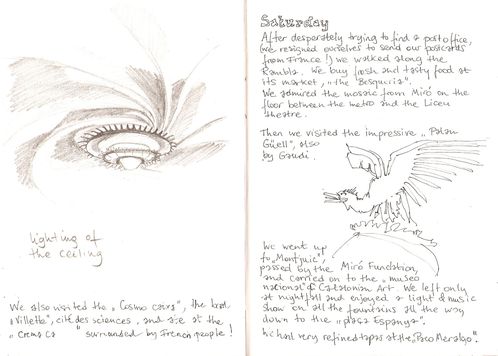 lighting of
the ceiling
We also visited the „Cosmo caixa", the local
„Villette", cité des sciences, and ate at the
„Crems ca" surrounded by French people!
Saturday
After desperately trying to find a post office,
(we resigned ourselves to send our postcards
from France!) we walked along the
Rambla. We buy fresh and tasty food at
its market, „the Besqueria".
We admired the mosaic from Miró on the
floor between the metro and the Liceu
theatre.
Then we visited the impressive „Palau
Güell", also
by Gaudi.
We went up
to „Montjuic",
passed by the Miró Fundation,
and carried on to the „museo
national" of Catalonian Art. We left only
at nightfall and enjoyed a light & music
show on all the fountains all the way
down to the „plaça Espanya".
We had very refined tapas at the „Paco Meralgo".